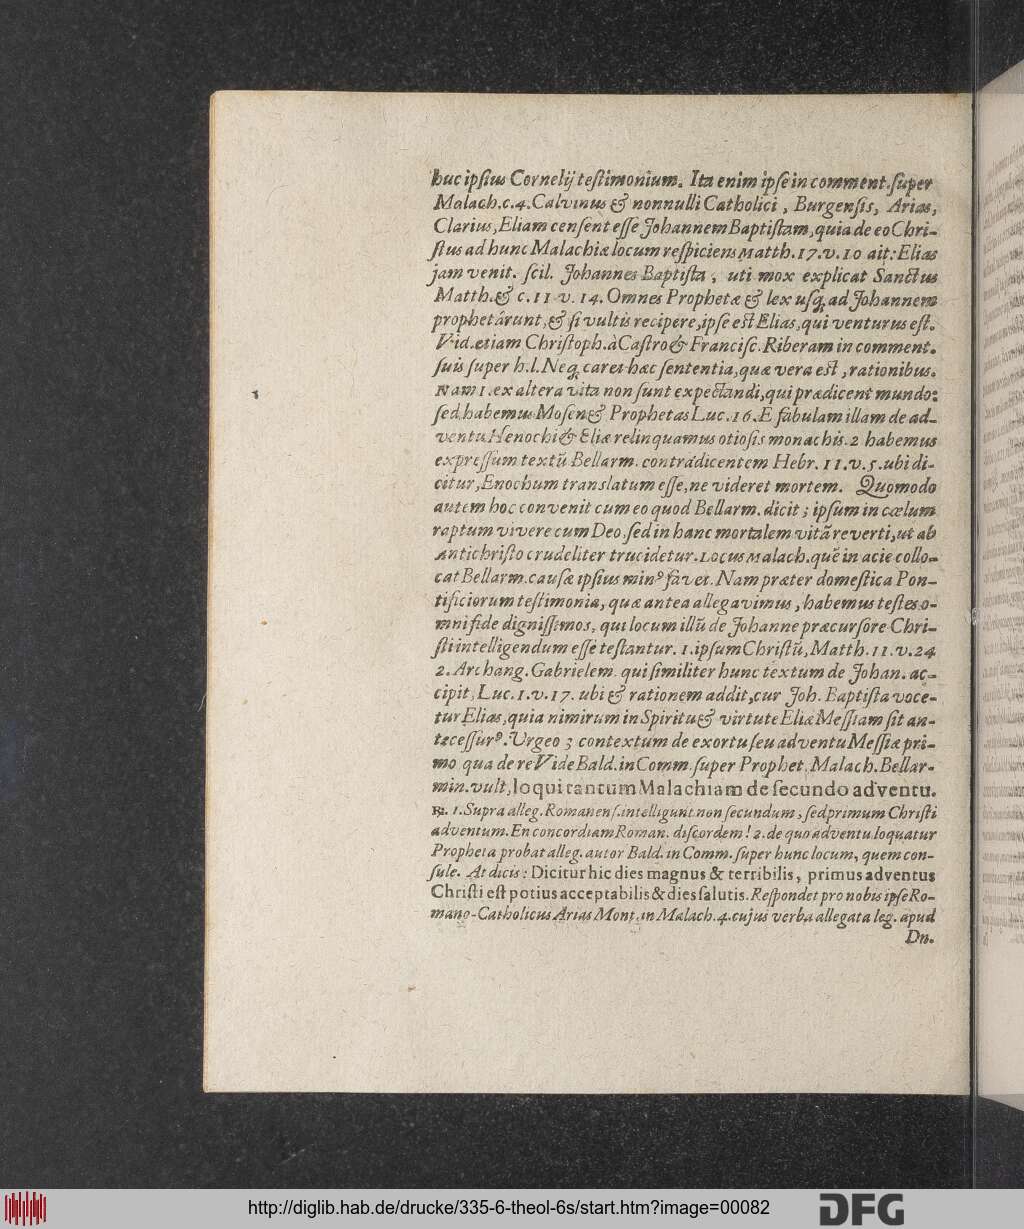 huc ipſius Cornelij teſtimonium. Ita enim ipſe in comment. ſuper
Malach. c. 4. Calvinus & nonnulli Catholici, Burgenſis, Arias,
Clarius, Eliam cenſent eſſe Johannem Baptiſtam, quia de eo Chri-
ſtus ad hunc Malachiæ locum reſpiciens Matth. 17. v. 10 ait: Elias
jam venit. ſcil. Johannes Baptiſta, uti mox explicat Sanctus
Matth. & c. 11 v. 14. Omnes Prophetæ & lex uſq; ad Johannem
prophetârunt, & ſi vultis recipere, ipſe eſt Elias, qui venturus eſt.
Vid. etiam Chriſtoph. à Caſtro & Franciſc. Riberam in comment.
ſuis ſuper h. l. Neq; caret hæc ſententia, quæ vera eſt, rationibus.
Nam 1. ex altera vita non ſunt expectandi, qui prædicent mundo:
ſed habemus Moſen & Prophetas Luc. 16. E fabulam illam de ad-
ventu Henochi & Eliæ relinquamus otioſis monachis. 2 habemus
expreſſum textū Bellarm. contradicentem Hebr. 11. v. 5. ubi di-
citur, Enochum translatum eſſe, ne videret mortem. Quomodo
autem hoc convenit cum eo quod Bellarm. dicit; ipſum in cœlum
raptum vivere cum Deo, ſed in hanc mortalem vitā reverti, ut ab
Antichriſto crudeliter trucidetur. Locus Malach. quē in acie collo-
cat Bellarm. cauſæ ipſius minꝰ favet. Nam præter domeſtica Pon-
tificiorum teſtimonia, quæ antea allegavimus, habemus teſtes o-
mni fide digniſſimos, qui locum illū de Johanne præcurſore Chri-
ſti intelligendum eſſe teſtantur. 1. ipſum Chriſtū, Matth. 11. v. 24
2. Archang. Gabrielem qui ſimiliter hunc textum de Johan. ac-
cipit, Luc. 1. v. 17. ubi & rationem addit, cur Joh. Baptiſta voce-
tur Elias, quia nimirum in Spiritu & virtute Eliæ Meſſiam ſit an-
teceſſurꝰ. Urgeo 3 contextum de exortu ſeu adventu Meſſiæ pri-
mo qua de re Vide Bald. in Comm. ſuper Prophet. Malach. Bellar-
min. vult, loqui tantum Malachiam de ſecundo adventu.
℞. 1. Supra alleg. Romanenſ. intelligunt non ſecundum, ſed primum Chriſti
adventum. En concordiam Roman. diſcordem! 2. de quo adventu loquatur
Propheta probat alleg. autor Bald. in Comm. ſuper hunc locum, quem con-
ſule. At dicis: Dicitur hic dies magnus & terribilis, primus adventus
Chriſti eſt potius acceptabilis & dies ſalutis. Reſpondet pro nobis ipſe Ro-
mano-Catholicus Arias Mont. in Malach. 4. cujus verba allegata leg. apud
Dn.
http://diglib.hab.de/drucke/335-6-theol-6s/start.htm?image=00082
DFG